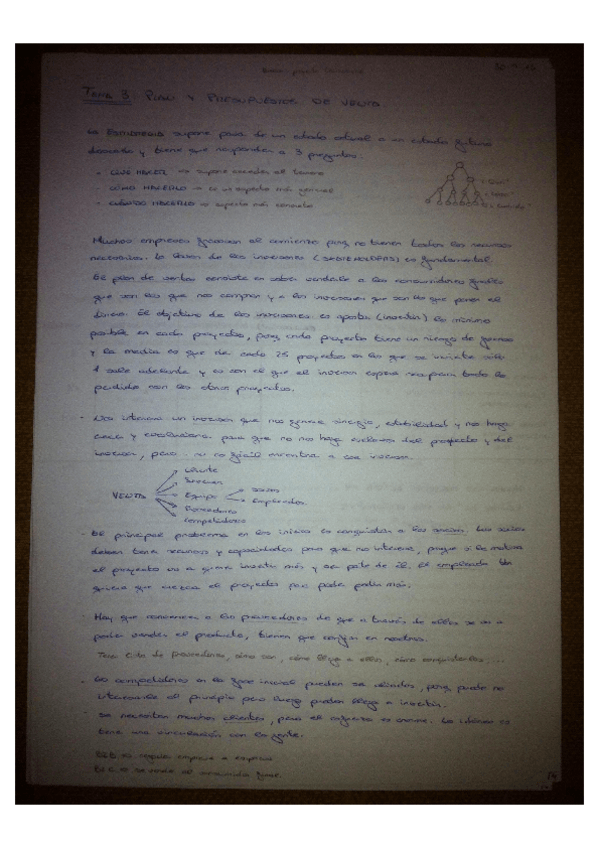 TEMA 3: PLAN Y PRESUPUESTOS DE VENTA
La ESTRATEGIA supone pasar de un estado actual a un estado futuro
deseado y tiene que responder a 3 preguntas:
- QUÉ HACER → supone
- CÓMO HACERLO → es un aspecto más general
- CUÁNDO HACERLO → aspecto más concreto
Muchas empresas fracasan al comienzo porq no tienen todos los recursos
necesarios. La de los inversores (STAKEHOLDERS) es fundamental.
El plan de ventas consiste en saber venderle a los consumidores finales
que son los que nos compran y a los inversores que son los que ponen el
dinero. El objetivo de los inversores es aportar (invertir) lo mínimo
posible en cada proyecto, porq cada proyecto tiene un riesgo de
y la media es que de cada 25 proyectos en los que se invierte sólo
1 sale adelante y es con el que el inversor espera recuperar todo lo
perdido con los otros proyectos.
- Nos interesa un inversor que nos genere sinergia, estabilidad y nos haga
crecer y para que no nos haga esclavos del proyecto y del
inversor, pero no es fácil encontrar a ese inversor.
VENTA
Cliente
Inversor
Equipo
Socios
Empleados
Proveedores
Competidores
- El principal problema en los inicios es conquistar a los socios. Los socios
deben tener recursos y capacidades para que nos interese, porque si le motiva
el proyecto va a querer invertir más y ser parte de él. El empleado
quiere que crezca el proyecto para poder pedir más.
- Hay que convencer a los proveedores de que a través de ellos se va a
poder vender el producto, tienen que confiar en nosotros.
de proveedores, cómo son, cómo llego a ellos, cómo conquistarlos...
- Los competidores en la fase inicial pueden ser aliados, porq puede no
interesarle al principio pero luego pueden llegar a invertir.
- Se necesitan muchos clientes, pero el esfuerzo es enorme. Lo idóneo es
tener una vinculación con la gente.
B2B es negocio empresa a empresa
B2C es se vende al consumidor final.